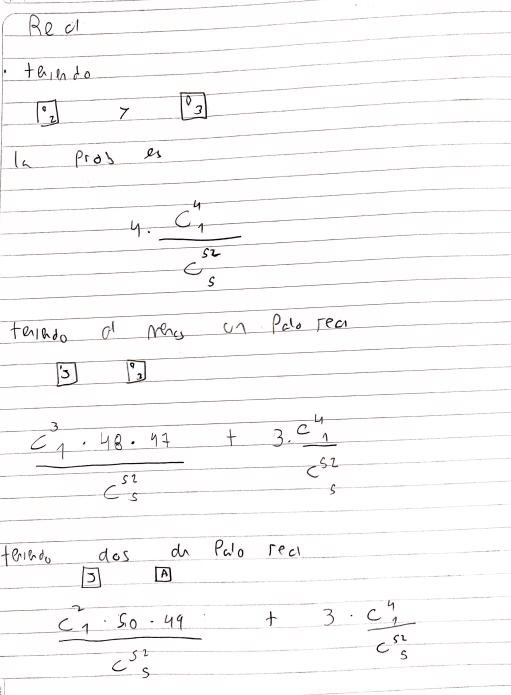 Real
• teniendo
2 y 3
la prob es
4 · C^4_1 / C^52_5
teniendo al menos un Palo real
J 3
C^3_1 · 48 · 47 / C^52_5 + 3 · C^4_1 / C^52_5
teniendo dos de Palo real
J A
C^2_1 · 50 · 49 / C^52_5 + 3 · C^4_1 / C^52_5